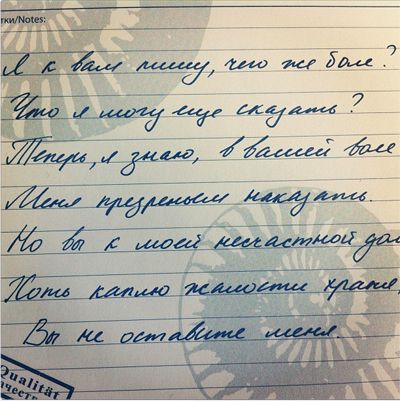 тки/Notes:
Я к вам пишу, чего же боле?
Что я могу еще сказать?
Теперь, я знаю, в вашей воле
Меня презреньем наказать.
Но вы к моей несчастной дол
Хоть каплю жалости храня,
Вы не оставите меня.
Qualität
ачеств